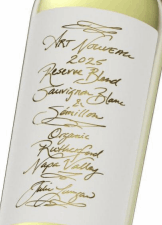 Art Nouveau
2025
Reserve Blend
Sauvignon Blanc
&
Sémillon
Organic
Rutherford
Napa Valley
Julie